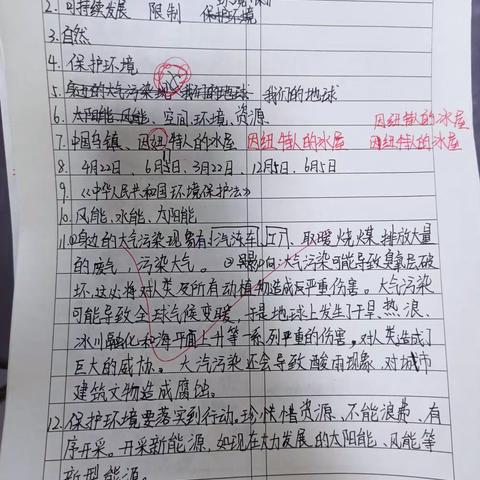 2. 可持续发展 限制 保护环境
3. 自然
4. 保护环境
5. 身边的大气污染现 我们的地球 我们的地球
6. 太阳能 风能、空间、环境、资源
因纽特人的冰屋
7. 中国乌镇、因纽特人的冰屋 因纽特人的冰屋 因纽特人的冰屋
8. 4月22日、6月5日、3月22日、12月5日、6月5日
9. 《中华人民共和国环境保护法》
10. 风能、水能、太阳能
11. ①身边的大气污染现象有:汽车、工厂、取暖烧煤排放大量
的废气,污染大气。②影响:大气污染可能导致臭氧层破
坏,这必将对人类及所有动植物造成严重伤害。大气污染
可能导致全球气候变暖,于是地球上发生了干旱、热浪、
冰川融化和海平面上升等一系列严重的伤害,对人类造成了
巨大的威胁。大汽污染还会导致酸雨现象,对城市
建筑文物造成腐蚀。
12. 保护环境要落实到行动。珍惜资源、不能浪费、有
序开采。开采新能源,如现在大力发展的太阳能、风能等
新型能源。